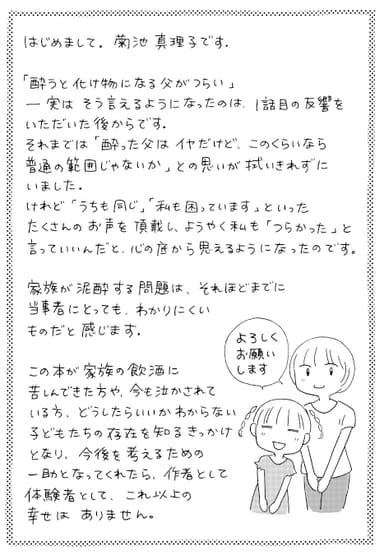 はじめまして。菊池 真理子です。
「酔うと化け物になる父がつらい」
― 実は そう言えるようになったのは、1話目の反響を
いただいた後からです。
それまでは「酔った父は イヤだけど、このくらいなら
普通の範囲じゃないか」との思いが拭いきれずに
いました。
けれど「うちも同じ」「私も困っています」といった
たくさんの お声を 頂戴し、ようやく私も「つらかった」と
言っていいんだと、心の底から思えるようになったのです。
家族が泥酔する問題は、それほどまでに
当事者にとっても、わかりにくい
ものだと 感じます。
この本が 家族の飲酒に
苦しんできた方や、今も泣かされて
いる方、どうしたらいいか わからない
子どもたちの存在を知る きっかけ
となり、今後を考えるための
一助となってくれたら、作者として
体験者として、これ以上の
幸せは ありません。
よろしく
お願い
します